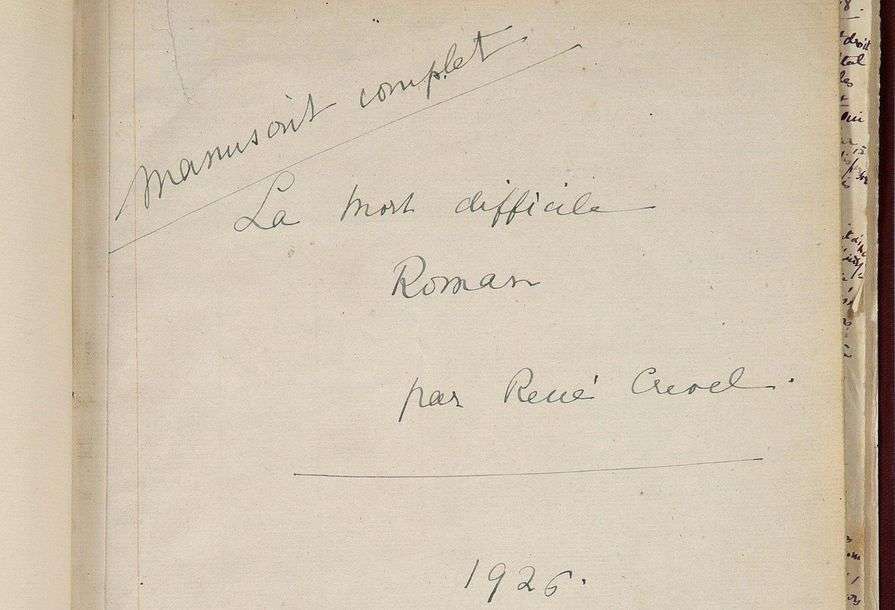 manuscrit complet
La mort difficile
Roman
par René Crevel.
1926.